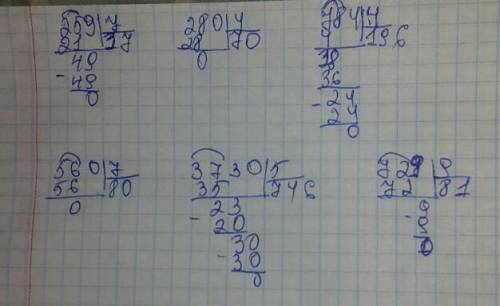 259 | 7
21 | 37
49
- 49
0
280 | 4
28 | 70
0
784 | 4
4 | 196
38
36
- 24
24
0
560 | 7
56 | 80
0
3730 | 5
35 | 746
- 23
20
- 30
30
0
729 | 9
72 | 81
- 9
9
0